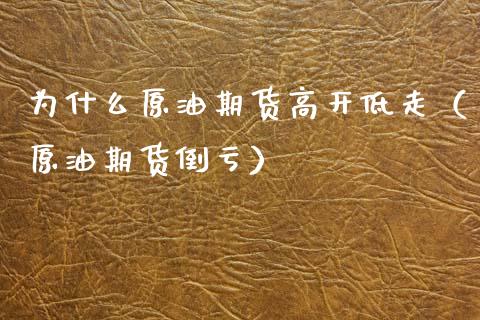 为什么原油期货高开低走（
原油期货倒亏）